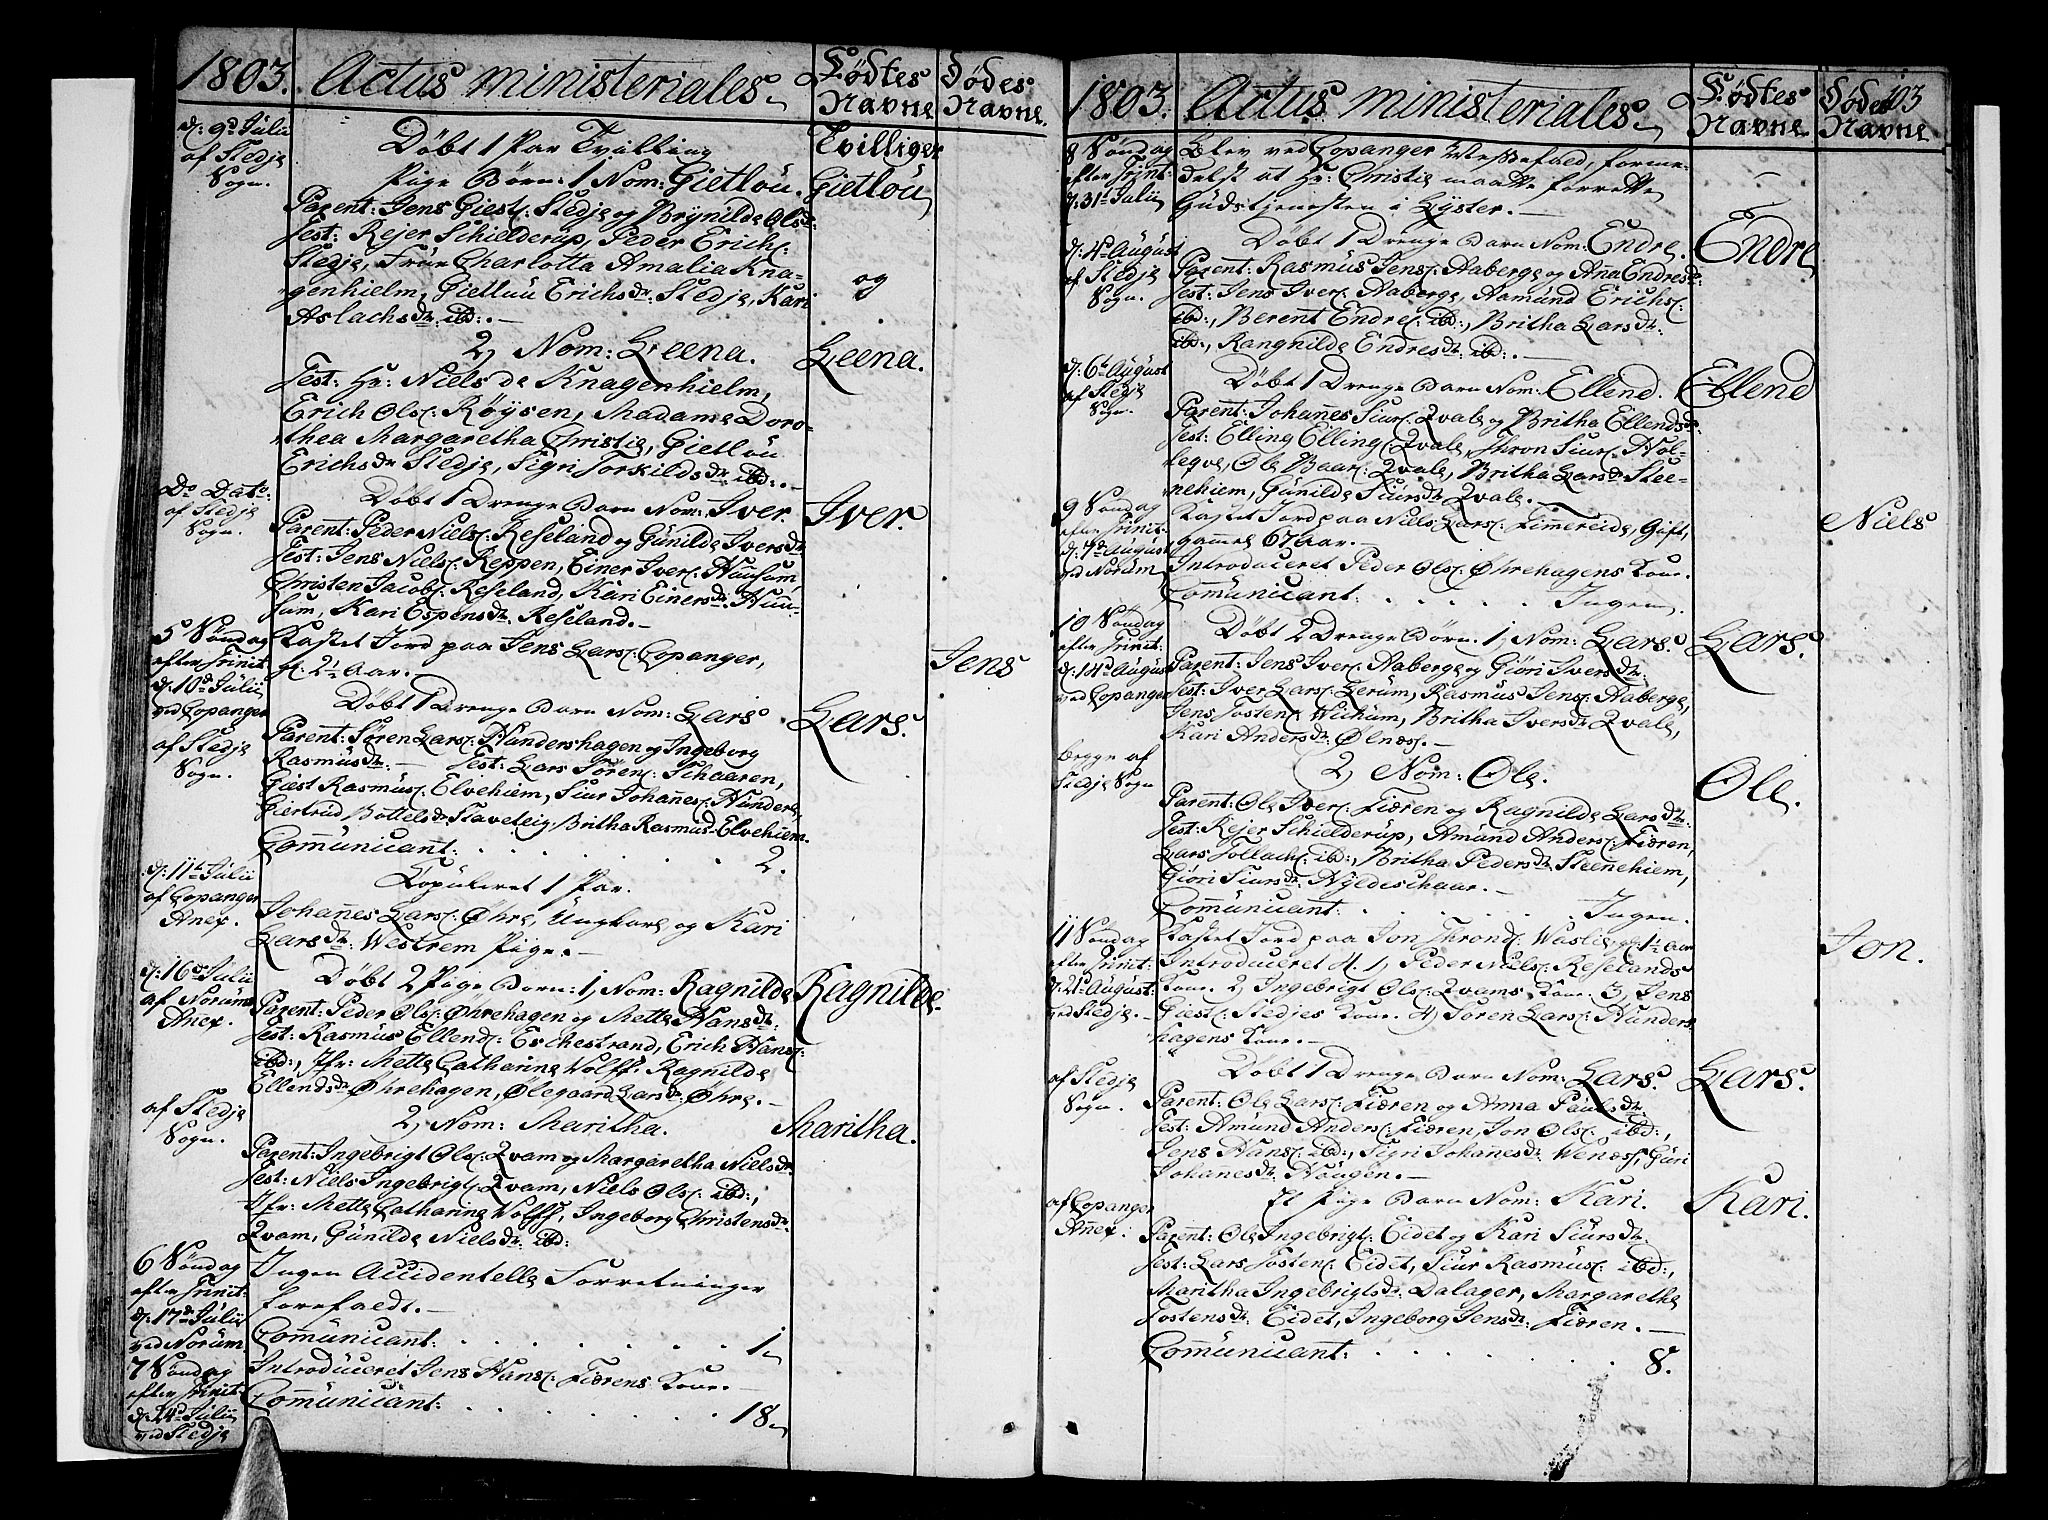 1803. Actus ministeriales. Fødtes Navne Dødes Navne.
d: 9d Julii af Stedje Sogn.
Døbt 1 Par Tvilling Tvilliger
Pige Børn: 1 Nom: Gietlöu. Gietlöu
Parent: Jens Giest: Stedje og Brÿnilde Olsdr:
Test: Rejer Schielderup, Peder Erichs:
Stedje, Frue Charlotta Amalia Kna-
genhielm, Gietlöu Erichsdr: Stedje, Kari og
Aslachsdr: ibd:.
2, Nom: Leena. Leena.
Test: Hr: Niels de Knagenhielm,
Erich Ols: Røÿsen, Madame Doro-
thea Margaretha Christie, Gietlöu
Erichsdr Stedje, Sigri Torkildsdr: ibd:.
Do Dato: af Stedje Sogn.
Døbt 1 Drenge Barn Nom: Iver. Iver.
Parent: Peder Niels: Reseland og Gunilde Iversdr
Test: Jens Niels: Reppen, Einer Ivers: Huusum,
Christen Jacobs: Reseland, Kari Einersdr: Huu-
sum, Kari Espensdr: Reseland.
5 Søndag efter Trinit: d: 10d Julii ved Copanger
Kastet Jord paa Jens Lars: Copanger, Jens
gl. 2½ Aar.
af Stedje Sogn.
Døbt 1 Drenge Barn Nom: Lars Lars.
Parent: Søren Lars: Hundershagen og Ingeborg
Rasmusdr: Test: Lars Søren: Schaaren,
Giest Rasmus: Elvehiem, Siur Johannes: Hundere,
Giertrud Bottelsdr: Staveteig, Britha Rasmusd Elvehiem.
Communicant: 2.
d: 11te Julii af Copanger Anex.
Copuleret 1 Par.
Johannes Lars: Øhre, Ungkarl og Kari
Larsdr: Westrem Pige.
d: 16de Julii af Norum Anex.
Døbt 2 Pige Børn: 1, Nom: Ragnilde Ragnilde.
Parent: Peder Ols: Øhrehagen og Mette Hansdr:
Test: Rasmus Ellend: Erichestrand, Erich Hans:
ibd:, Jfr: Mette Catharine Wolff. Ragnilde
Ellendsdr: Øhrehagen, Olegaard Larsdr: Øhre.
af Stedje Sogn.
2, Nom: Maritha. Maritha.
Parent: Ingebrigt Ols: Qvam og Margaretha Nielsdr:
Test: Niels Ingebrigt: Qvam, Niels Ols: ibd:,
Jfr: Mette Catharine Wolff, Ingeborg Christensdr:
Qvam, Gunilde Nielsdr: ibd:
6 Søndag efter Trinit: d: 17de Julii ved Norum.
Ingen Accidentelle Forretninger
forefaldt.
Communicant: 1.
7 Søndag efter Trinit: d: 24d Julii ved Stedje
Introduceret Jens Hans: Fiærens Kone.
Communicant: 18.
1803. Actus ministeriales. Fødtes Navne Dødes Navne. 103
8 Søndag efter Trinit: d: 31te Julii
Blev ved Copanger Messefald, forme-
delst at Hr: Christie maatte forrette
Gudstjenesten i Lyster.
d: 4d August af Stedje Sogn.
Døbt 1 Drenge Barn Nom: Endre. Endre
Parent: Rasmus Jens: Aaberge og Ana Endresdr:
Test: Jens Ivers: Aaberge, Aamund Erichs:
ibd:, Berent Endres: ibd:, Britha Larsdr:
ibd:, Rangnilde Endresdr: ibd:.
d: 6te August af Stedje Sogn.
Døbt 1 Drenge Barn Nom: Ellend. Ellend
Parent: Johannes Siur: Qvale og Britha Ellendsdr:
Test: Elling Elling: Qvale, Thron Siur: Hol-
legve, Ole Baar: Qvale, Britha Larsdr: Stee-
nehiem, Gunilde Siursdr: Qvale.
9 Søndag efter Trinit: d: 7de August ved Norum
Kastet Jord paa Niels Lars: Fimereide, Gift, Niels
gammel 67 Aar.
Introduceret Peder Ols: Øhrehagens Kone.
Communicant: Ingen.
10 Søndag efter Trinit: d: 14de August ved Copanger
Døbt 2 Drenge Børn. 1, Nom: Lars. Lars.
Parent: Jens Ivers: Aaberge og Giøri Iversdr:
Test: Iver Lars: Lerum, Rasmus Jens: Aaberge,
Jens Josten: Wichum, Britha Iversdr: Qvale,
Kari Andersdr: Ølnæs.
begge af Stedje Sogn
2, Nom: Ole. Ole.
Parent: Ole Ivers: Fiæren og Ragnilde Larsdr:
Test: Rejer Schielderup, Amund Anders: Fiæren,
Lars Tollach: ibd:, Britha Pedersdr: Steenehiem,
Giøri Siursdr: Nyldeschaar.
Communicant: Ingen.
11 Søndag efter Trinit: d: 21de August: ved Stedje.
Kastet Jord paa Jon Thrond: Waslie, gl: 1½ Aar Jon.
Introduceret 4. 1, Peder Niels: Reselands
Kone. 2, Ingebrigt Ols: Qvams Kone. 3, Jens
Giest: Stedjes Kone. 4, Søren Lars: Hunders
hagens Kone.
af Stedje Sogn.
Døbt 1 Drenge Barn Nom: Lars. Lars.
Parent: Ole Lars: Fiæren og Anna Paulsdr:
Test: Amund Anders: Fiæren, Jon Ols: ibd:,
Jens Hans: ibd:, Sigri Johanesdr: Wenæs, Guri
Johannesdr: Haugen.
af Copanger Anex:
Et Pige Barn Nom: Kari. Kari.
Parent: Ole Ingebrigt: Eidet og Kari Siursdr:
Test: Lars Josten: Eidet, Siur Rasmus: ibd:,
Maritha Ingebrigtsdr: Dalager, Margaretha
Jostensdr: Eidet, Ingeborg Jensdr: Fiæren.
Communicant: 8.